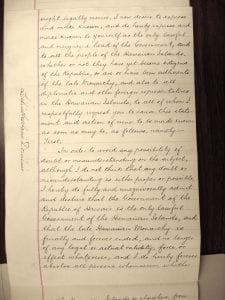 might legally owner, I now desire to express
and make known, and do hereby express and
make known to yourself as the only lawful
and recognized head of the Government, and
to all the people of the Hawaiian Islands,
whether or not they have yet become citizens
of the Republic, or are or have been adherents
of the late Monarchy, and also to all
diplomatic and other foreign representatives
in the Hawaiian Islands, to all of whom I
respectfully request you to cause this state
ment and action of mine to be made known
as soon as may be, as follows, namely:
First.
In order to avoid any possibility of
doubt or misunderstanding on the subject,
although I do not think that any doubt or
misunderstanding is either proper or possible,
I hereby do fully and unequivocally admit
and declare that the Government of the
Republic of Hawaii is the only lawful
Government of the Hawaiian Islands, and
that the late Hawaiian Monarchy is
finally and forever ended, and no longer
of any legal or actual validity, force or
effect whatsoever, and I do hereby forever
absolve all persons whomsoever, whether
Liliuokalani Dominis
Islands or elsewhere, from